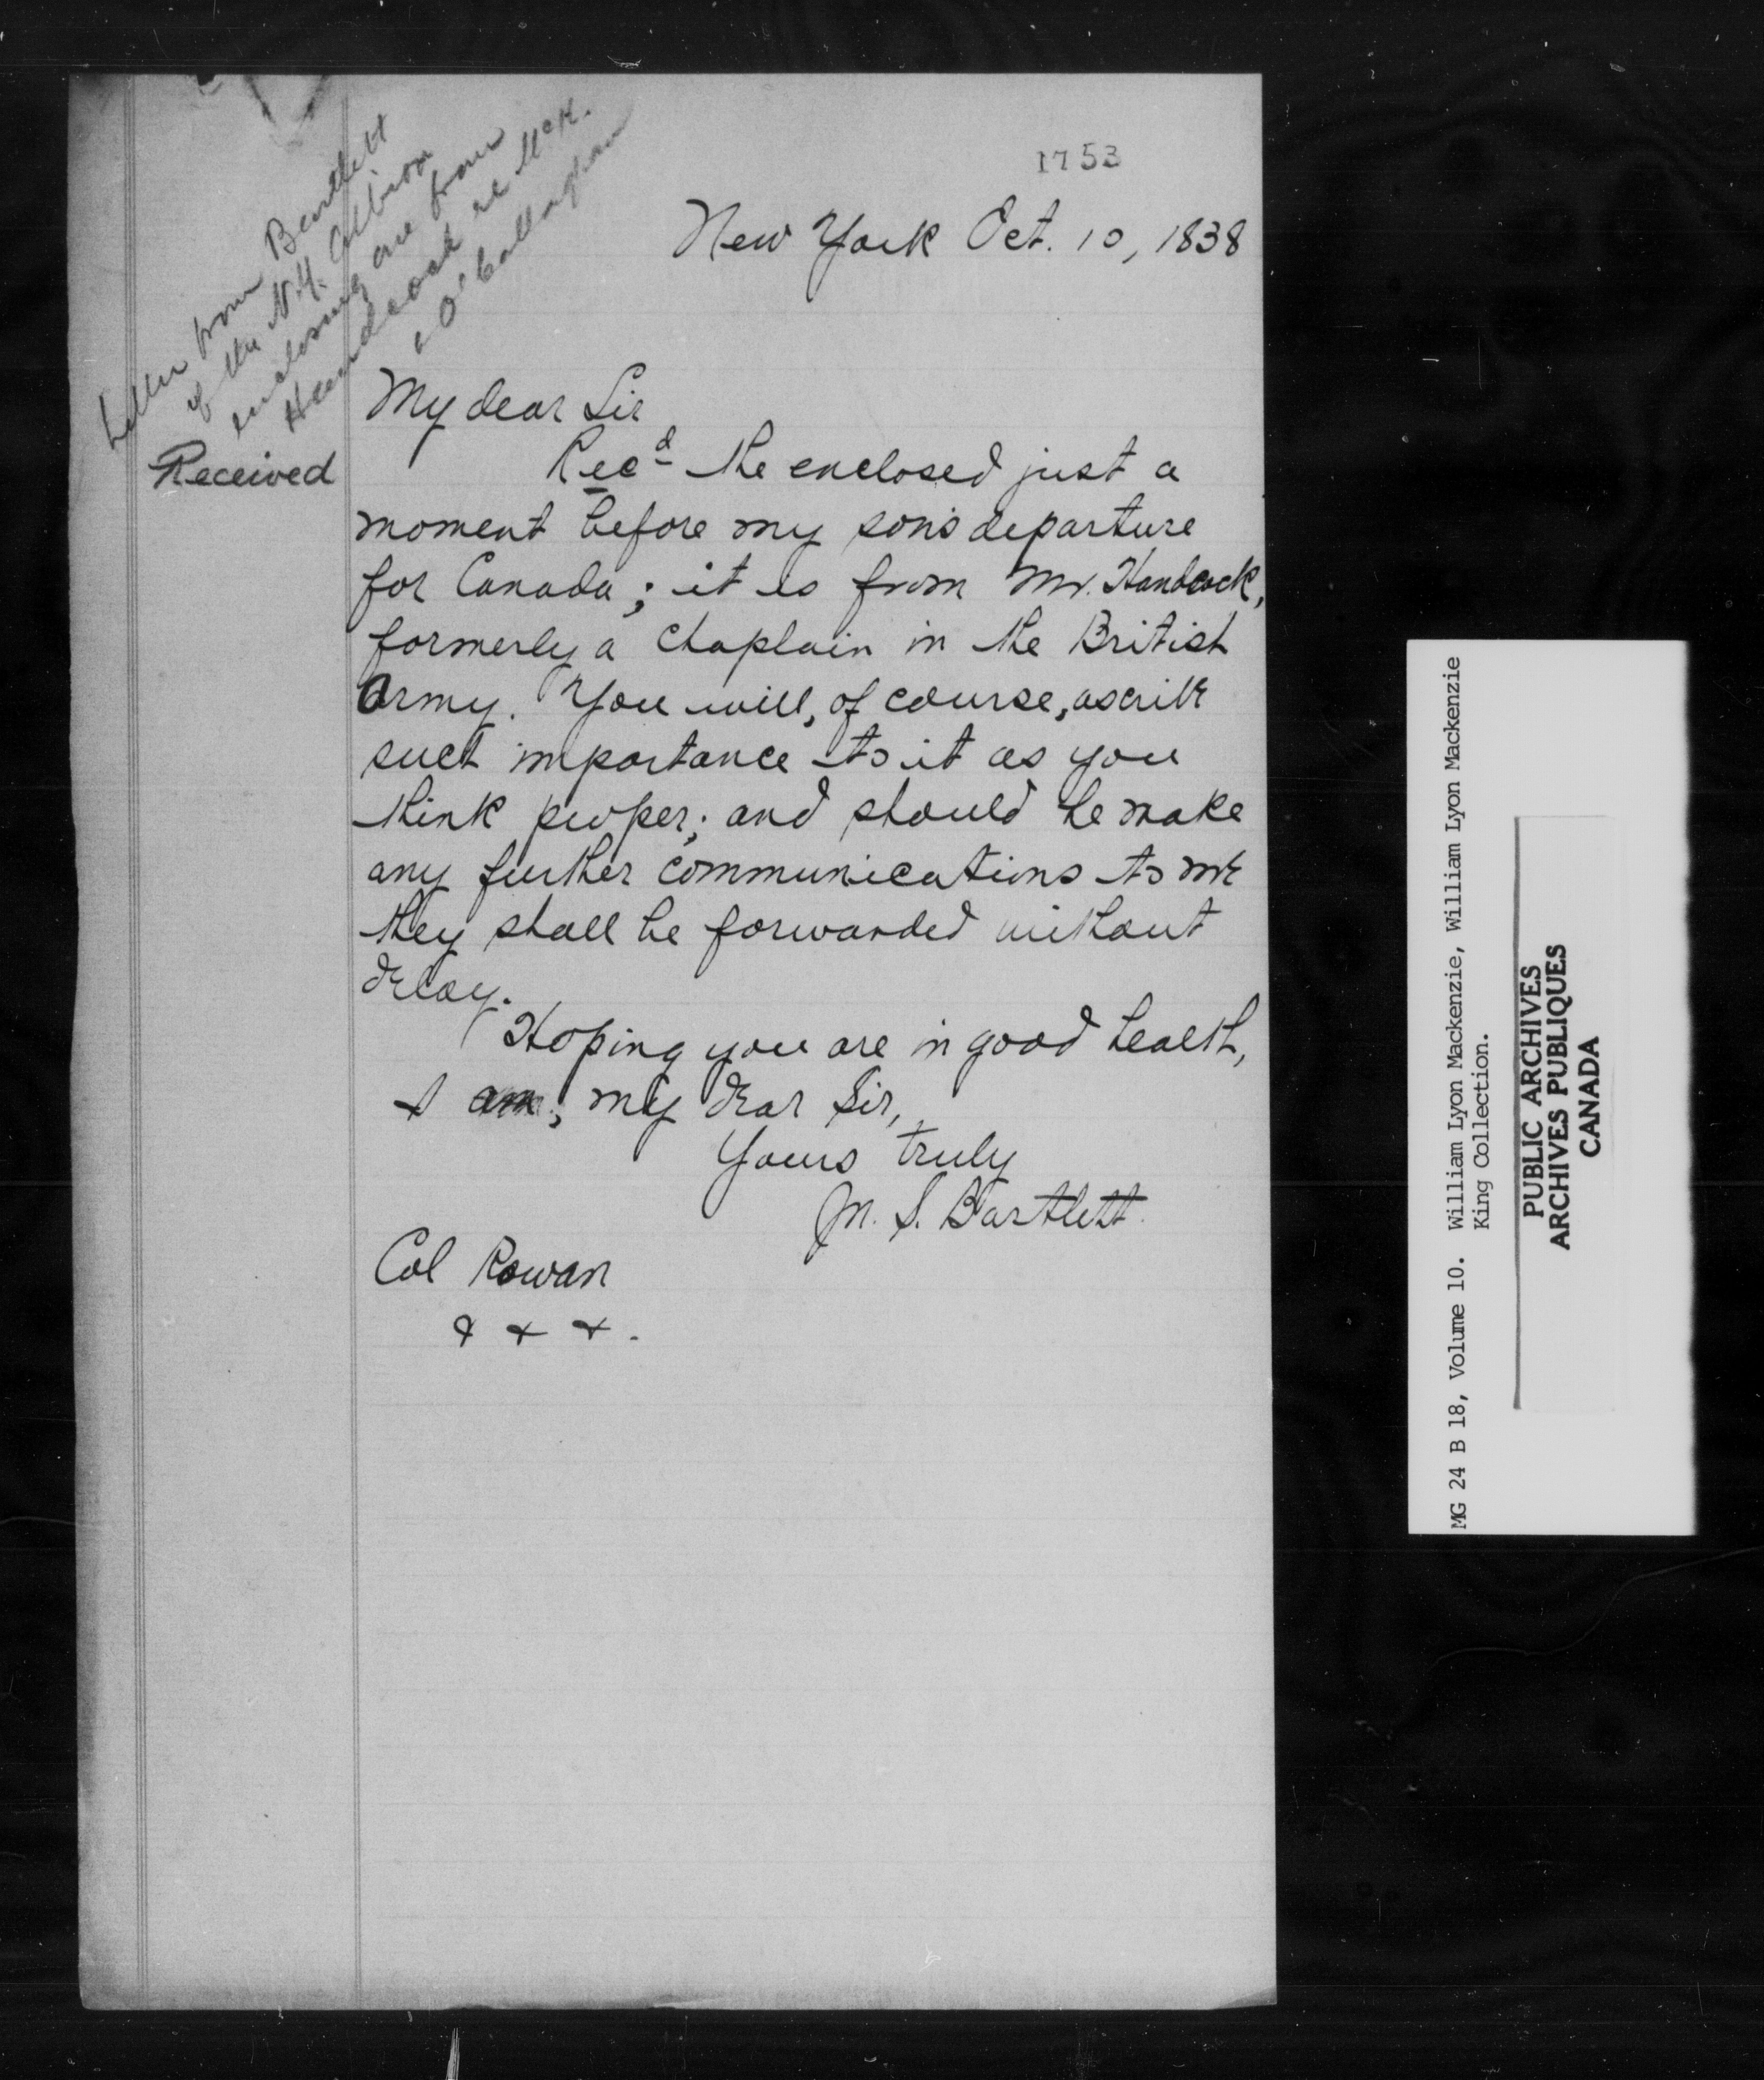 1753
Letter from Bartlett
of the N.Y. Albion
enclosing one from
Handcock re McK.
& O'Callaghan
New York Oct. 10, 1838
My dear Sir
Received
Recd the enclosed just a
moment before my son's departure
for Canada; it is from Mr. Handcock,
formerly a Chaplain in the British
Army. You will, of course, ascribe
such importance to it as you
think proper; and should he make
any further communications to me
they shall be forwarded without
delay.
Hoping you are in good health,
I am, my dear Sir,
Yours truly
M. S. Bartlett.
Col Rowan
& & &.
MG 24 B 18, Volume 10. William Lyon Mackenzie, William Lyon Mackenzie
King Collection.
PUBLIC ARCHIVES
ARCHIVES PUBLIQUES
CANADA